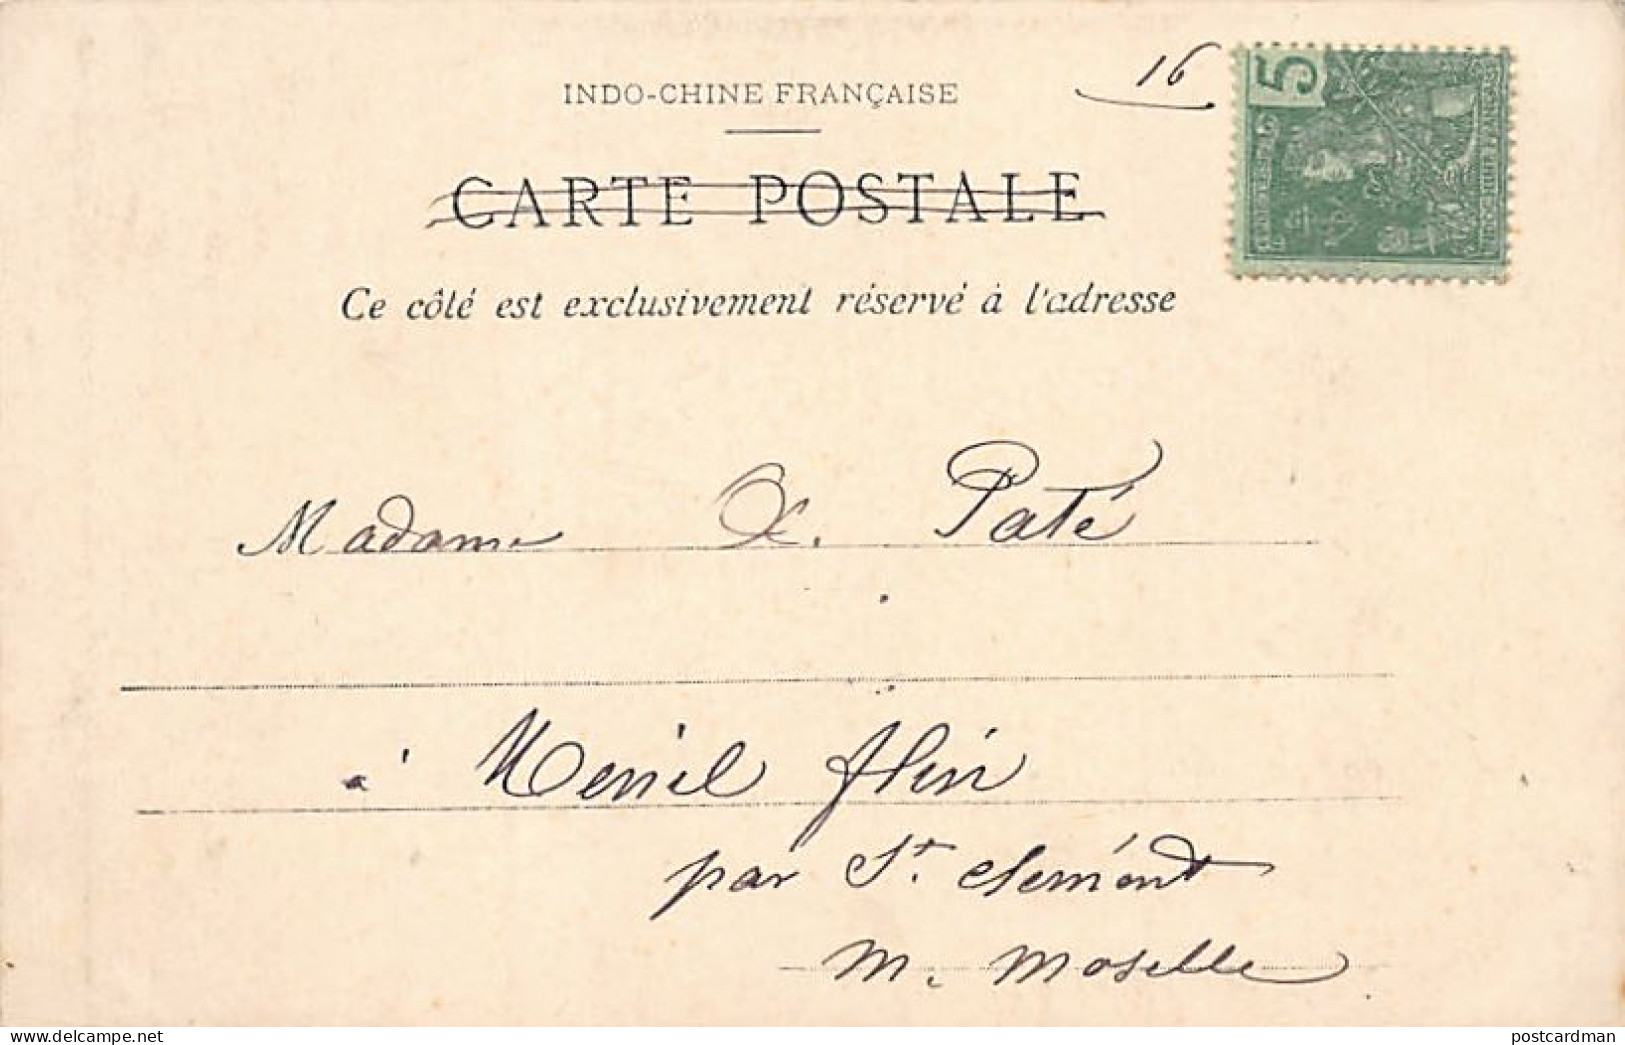 INDO-CHINE FRANÇAISE
16
5
CARTE POSTALE
Ce côté est exclusivement réservé à l'adresse
Madame X. Paté
à Menil flin
par St. Clément
M. Moselle
www.delcampe.net
postcardman